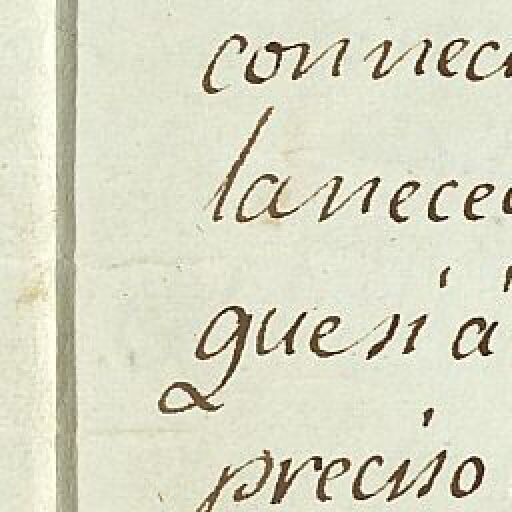 con nec
la nece
que si á
preciso